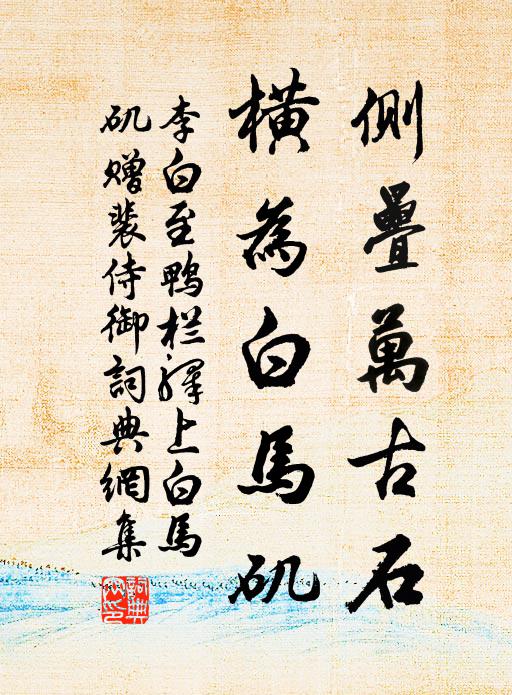 側疊萬古石
橫為白馬矶
李白至鸭栏驿上白馬
矶赠裴侍御詞典網集